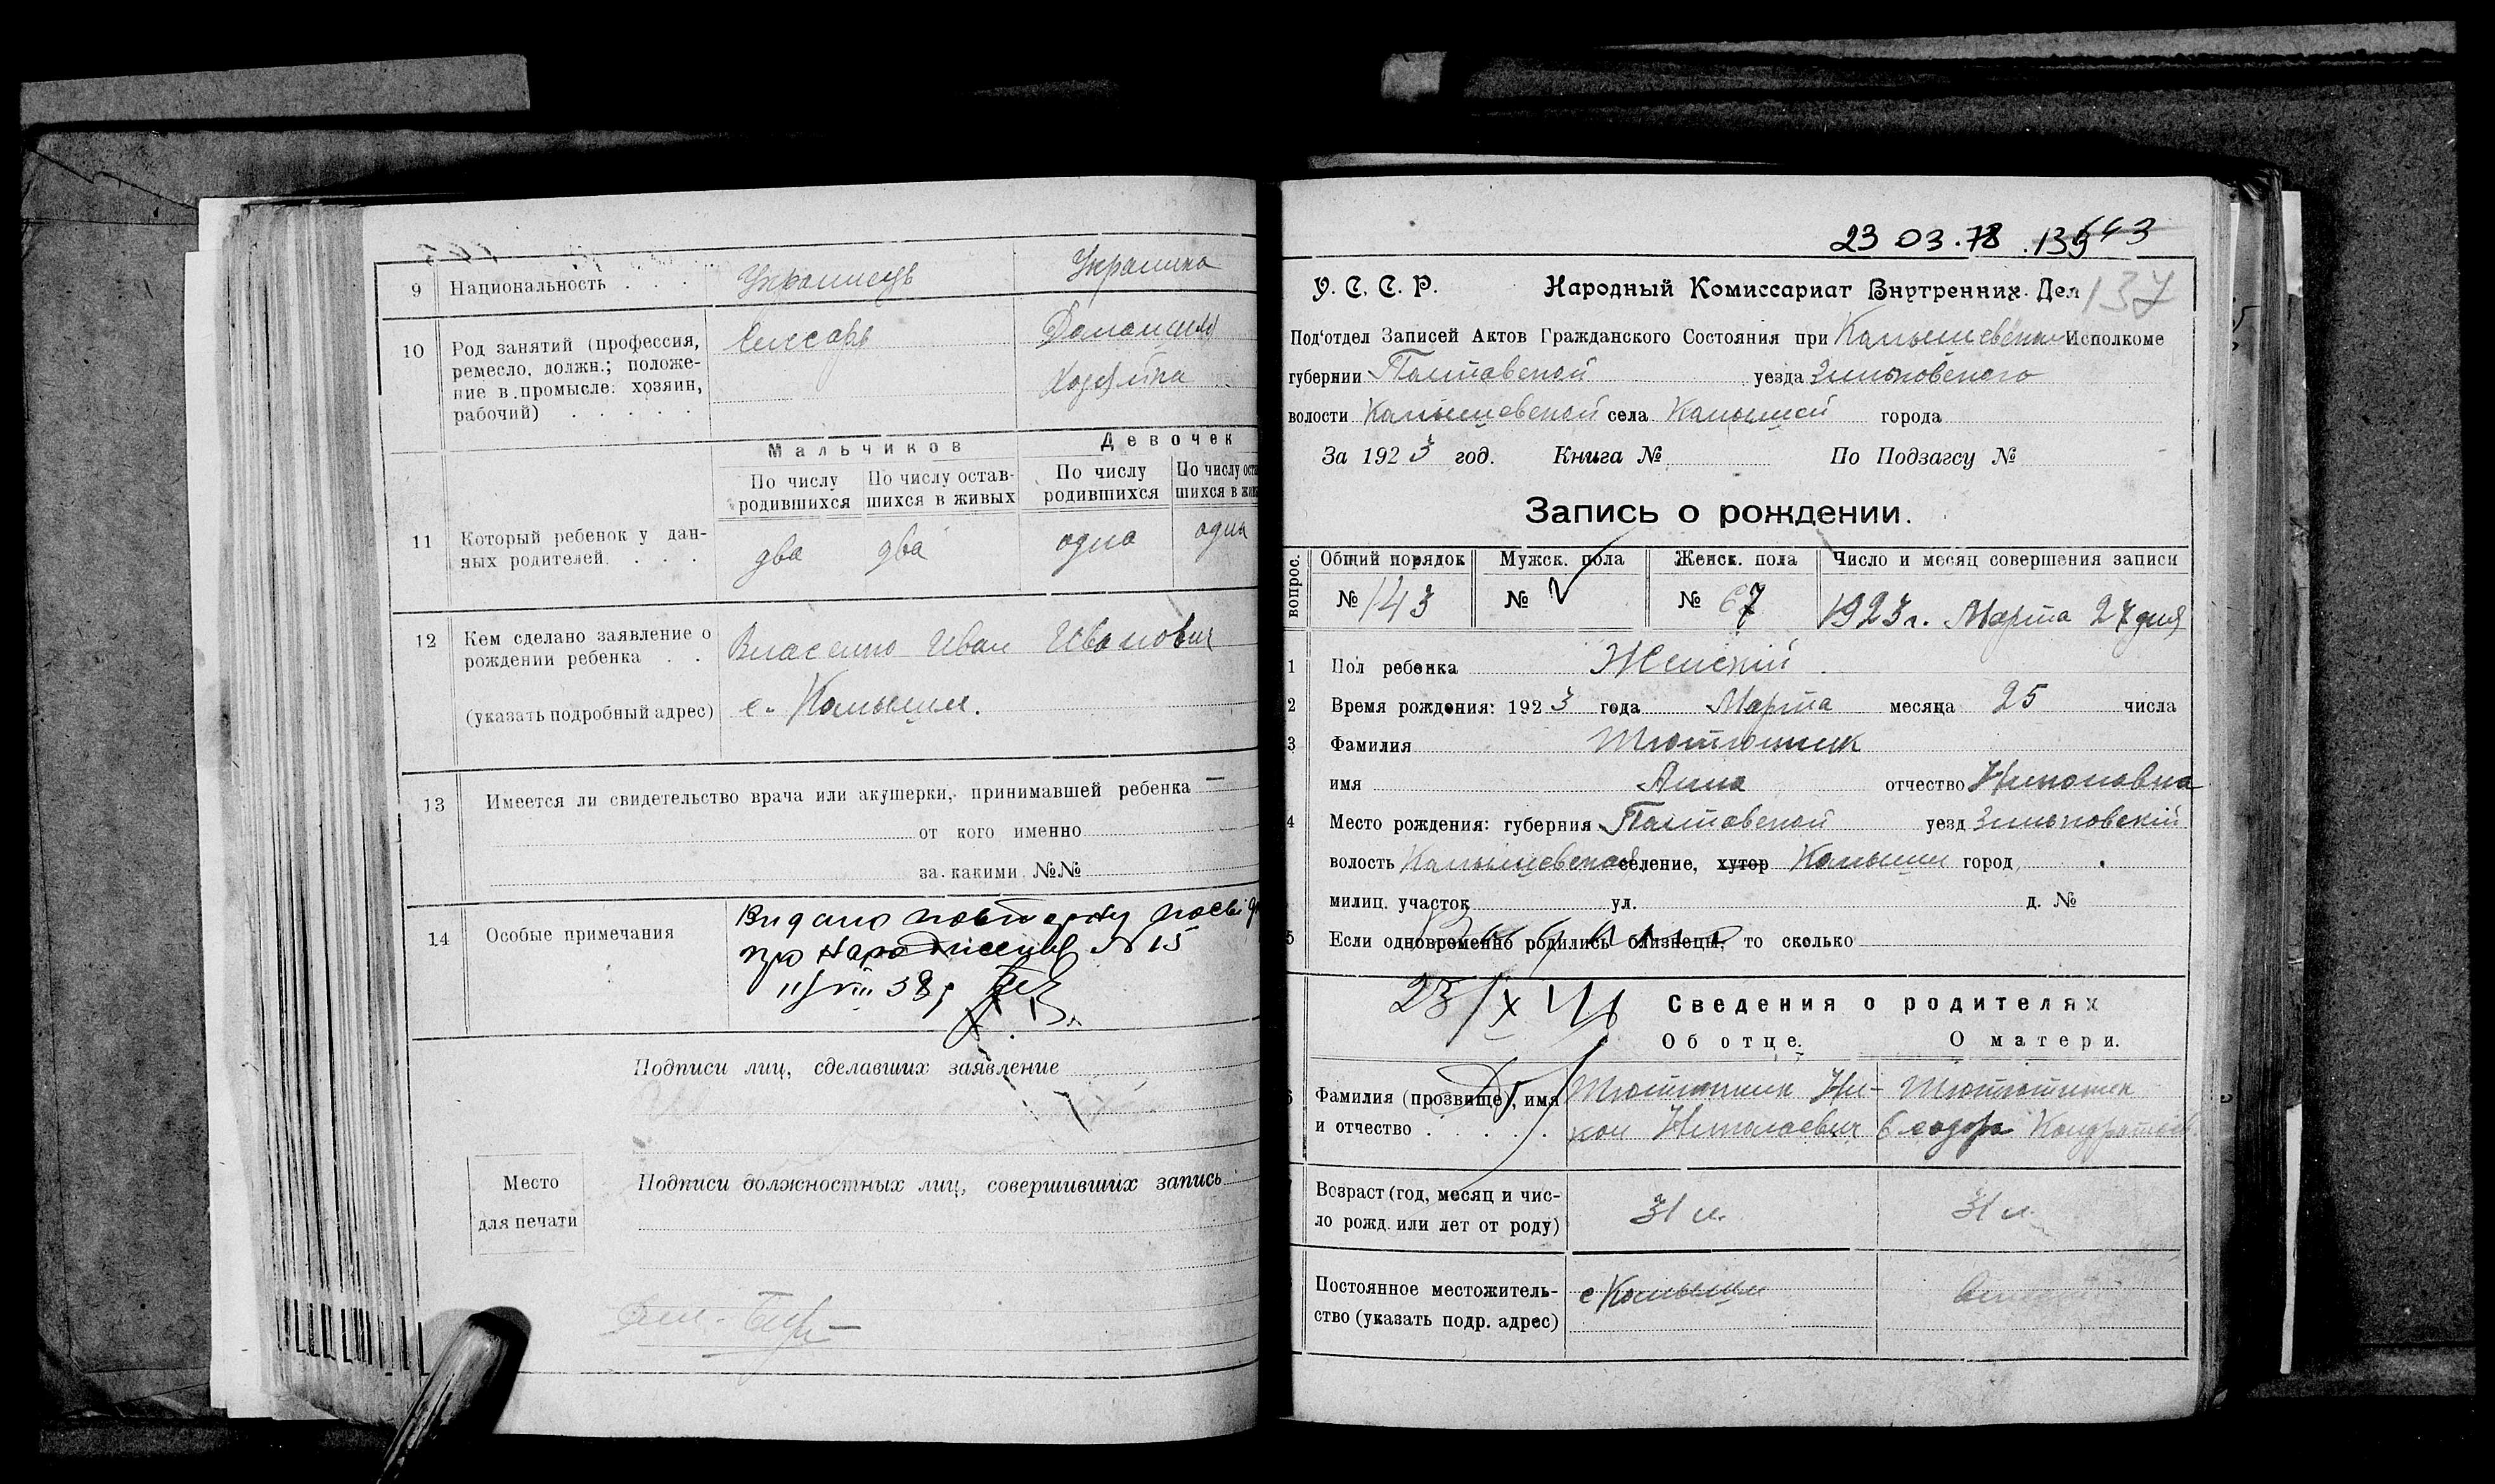 9 Национальность . . . Украинець Украинка
10 Род занятий (профессия, Слесарь Домашняя
ремесло, должн.; положе- Хозяйка
ние в промысле: хозяин,
рабочий) . . . . .
Мальчиков Девочек
По числу По числу остав- По числу По числу оста
родившихся шихся в живых родившихся шихся в жив
11 Который ребенок у дан- два два одна одна
ных родителей. . . .
12 Кем сделано заявление о Власенко Иван Иванович
рождении ребенка . .
(указать подробный адрес) с. Камыши.
13 Имеется ли свидетельство врача или акушерки, принимавшей ребенка —
от кого именно
за какими №№
14 Особые примечания Видано повторну посвід
про народження N 15
11/VIII 38р
Подписи лиц, сделавших заявление
Место Подписи должностных лиц, совершивших запись
для печати
23 03.78 .135 143
У. С. С. Р. Народный Комиссариат Внутренних Дел 137
Под'отдел Записей Актов Гражданского Состояния при Камышевском Исполкоме
губернии Полтавской уезда Зиньковского
волости Камышевской села Камышей города
За 1923 год. Книга № По Подзагсу №
Запись о рождении.
вопрос. Общий порядок Мужск. пола Женск. пола Число и месяц совершения записи
№ 143 № № 67 1923 г. Марта 27 дня
1 Пол ребенка Женскій
2 Время рождения: 1923 года Марта месяца 25 числа
3 Фамилия Тютюнник
имя Анна отчество Никоновна
4 Место рождения: губерния Полтавской уезд Зиньковскій
волость Камышевская селение, хутор Камыши город
милиц. участок ул. д. №
5 Если одновременно родились близнецы, то сколько
23/X Сведения о родителях
Об отце. О матери.
6 Фамилия (прозвище), имя Тютюнник Ни- Тютюнник
и отчество . . . . . кон Николаевич Феодора Кондратьев
Возраст (год, месяц и чис- 31 л. 31 л.
ло рожд. или лет от роду)
Постоянное местожитель- с Камыши
ство (указать подр. адрес)